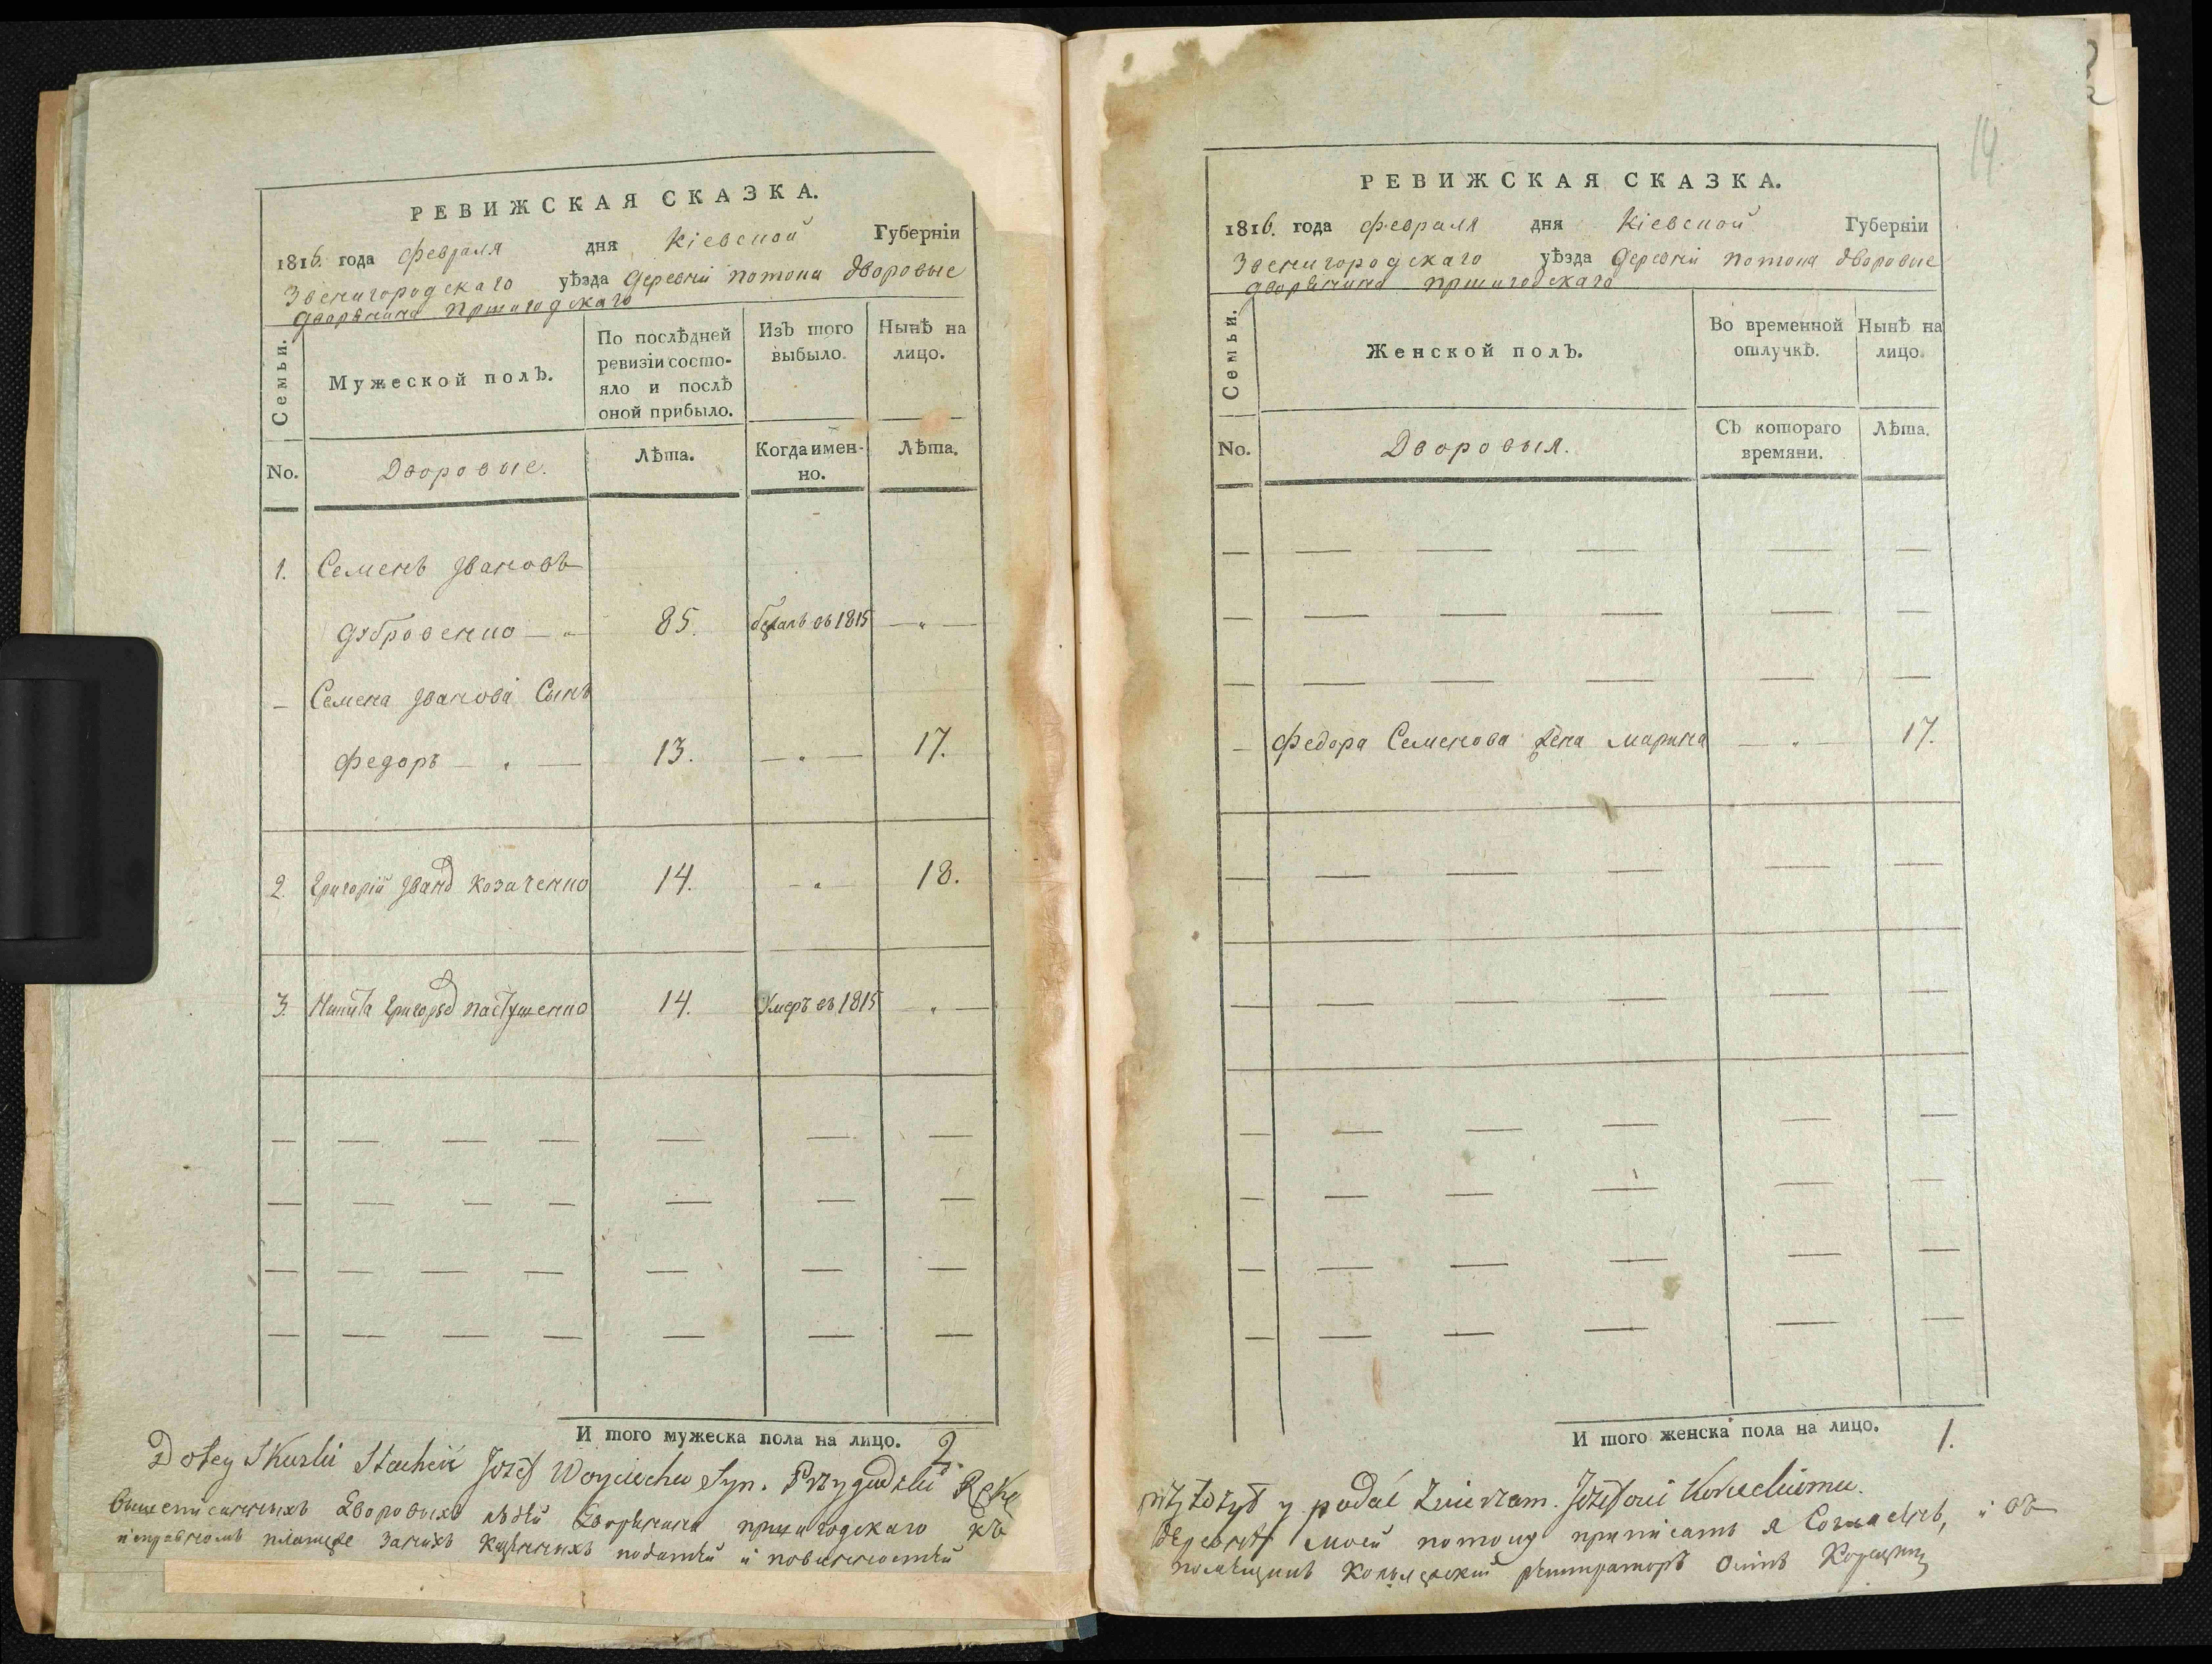 РЕВИЖСКАЯ СКАЗКА.
1816. года февраля дня Кіевской Губерніи
Звенигородскаго уѣзда деревни потока дворовые
дворянина пржигодскаго
Семьи.
Мужеской полъ.
По послѣдней
ревизіи состо-
яло и послѣ
оной прибыло.
Изъ того
выбыло.
Нынѣ на
лицо.
No.
Дворовые.
Лѣта.
Когда имен-
но.
Лѣта.
1. Семенъ Ивановъ
дубровенко — „ — 85. бежалъ въ 1815 — „ —
— Семена Иванова Сынъ
федоръ — „ — 13. — „ — 17.
2. Григорій Иванов козаченко 14. — „ — 18.
3. Никита Григорьев пастушенко 14. Умеръ въ 1815 „ —
И того мужеска пола на лицо. 2.
Józef Woyciecha Syn. Przygodzki
вышеписанныхъ дворовыхъ людей дворянина пржигодскаго къ
исправномъ платеже заникъ казенныхъ податей и повинностей
14.
РЕВИЖСКАЯ СКАЗКА.
1816. года февраля дня Кіевской Губерніи
Звенигородскаго уѣзда деревни потока дворовые
дворянина пржигодскаго
Семьи.
Женской полъ.
Во временной
отлучкѣ.
Нынѣ на
лицо.
No.
Дворовыя.
Съ котораго
времяни.
Лѣта.
— федора Семенова жена марина — „ — 17.
И того женска пола на лицо. 1.
y podał
деревни моей потоку приписать я Согласенъ, и въ
помещикъ регистраторъ Осипъ